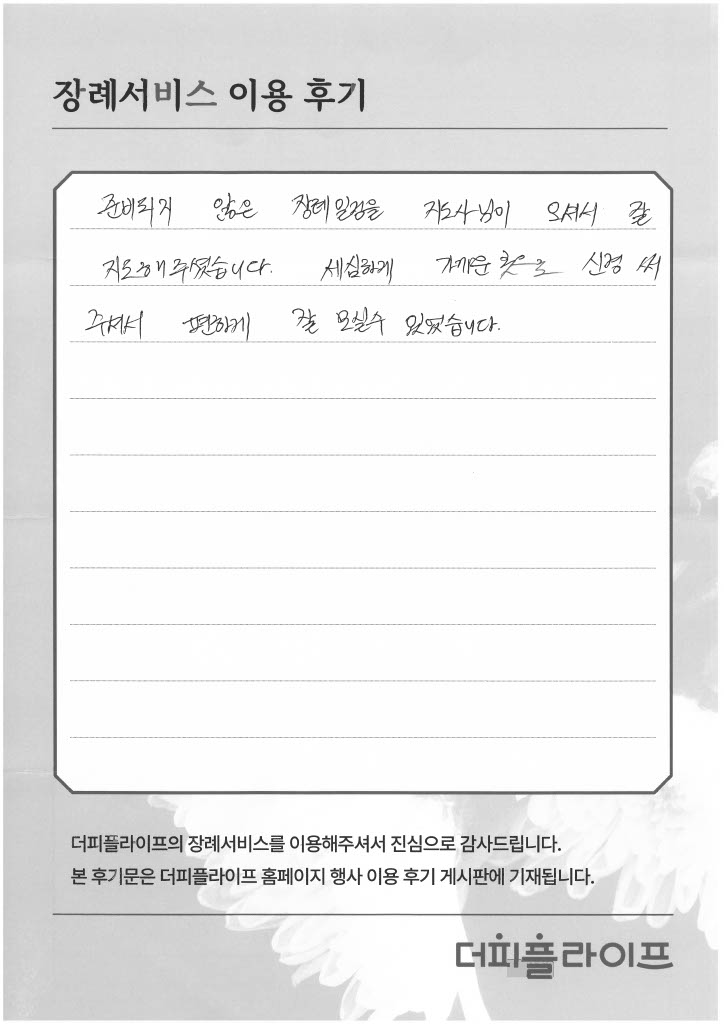 장례서비스 이용 후기
준비되지 않은 장례일정을 지도사님이 오셔서 잘
지도해주셨습니다. 세심하게 가까운 곳으로 신경 써
주셔서 편하게 잘 모실수 있었습니다.
더피플라이프의 장례서비스를 이용해주셔서 진심으로 감사드립니다.
본 후기문은 더피플라이프 홈페이지 행사 이용 후기 게시판에 기재됩니다.
더피플라이프